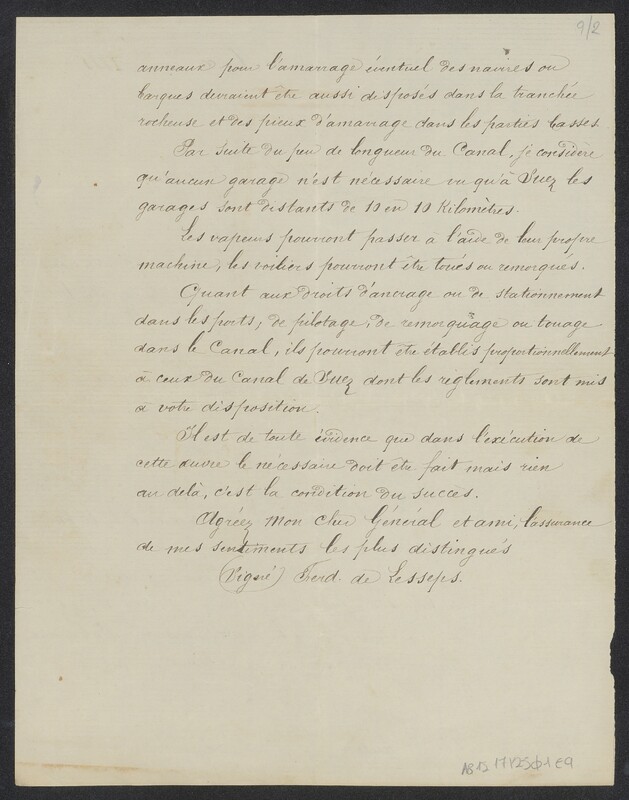 9/2
anneaux pour l'amarrage éventuel des navires ou
barques devraient être aussi disposés dans la tranchée
rocheuse et des pieux d'amarrage dans les parties basses.
Par suite du peu de longueur du Canal, je considère
qu'aucun garage n'est nécessaire vu qu'à Suez les
garages sont distants de 10 en 10 Kilomètres.
Les vapeurs pourront passer à l'aide de leur propre
machine, les voiliers pourront être toués ou remorqués.
Quant aux droits d'ancrage ou de stationnement
dans les ports, de pilotage, de remorquage ou touage
dans le Canal, ils pourront être établis proportionnellement
à ceux du Canal de Suez dont les règlements sont mis
à votre disposition.
Il est de toute évidence que dans l'exécution de
cette œuvre le nécessaire doit être fait mais rien
au delà, c'est la condition du succès.
Agréez Mon cher Général et ami, l'assurance
de mes sentiments les plus distingués
(Signé) Ferd. de Lesseps.